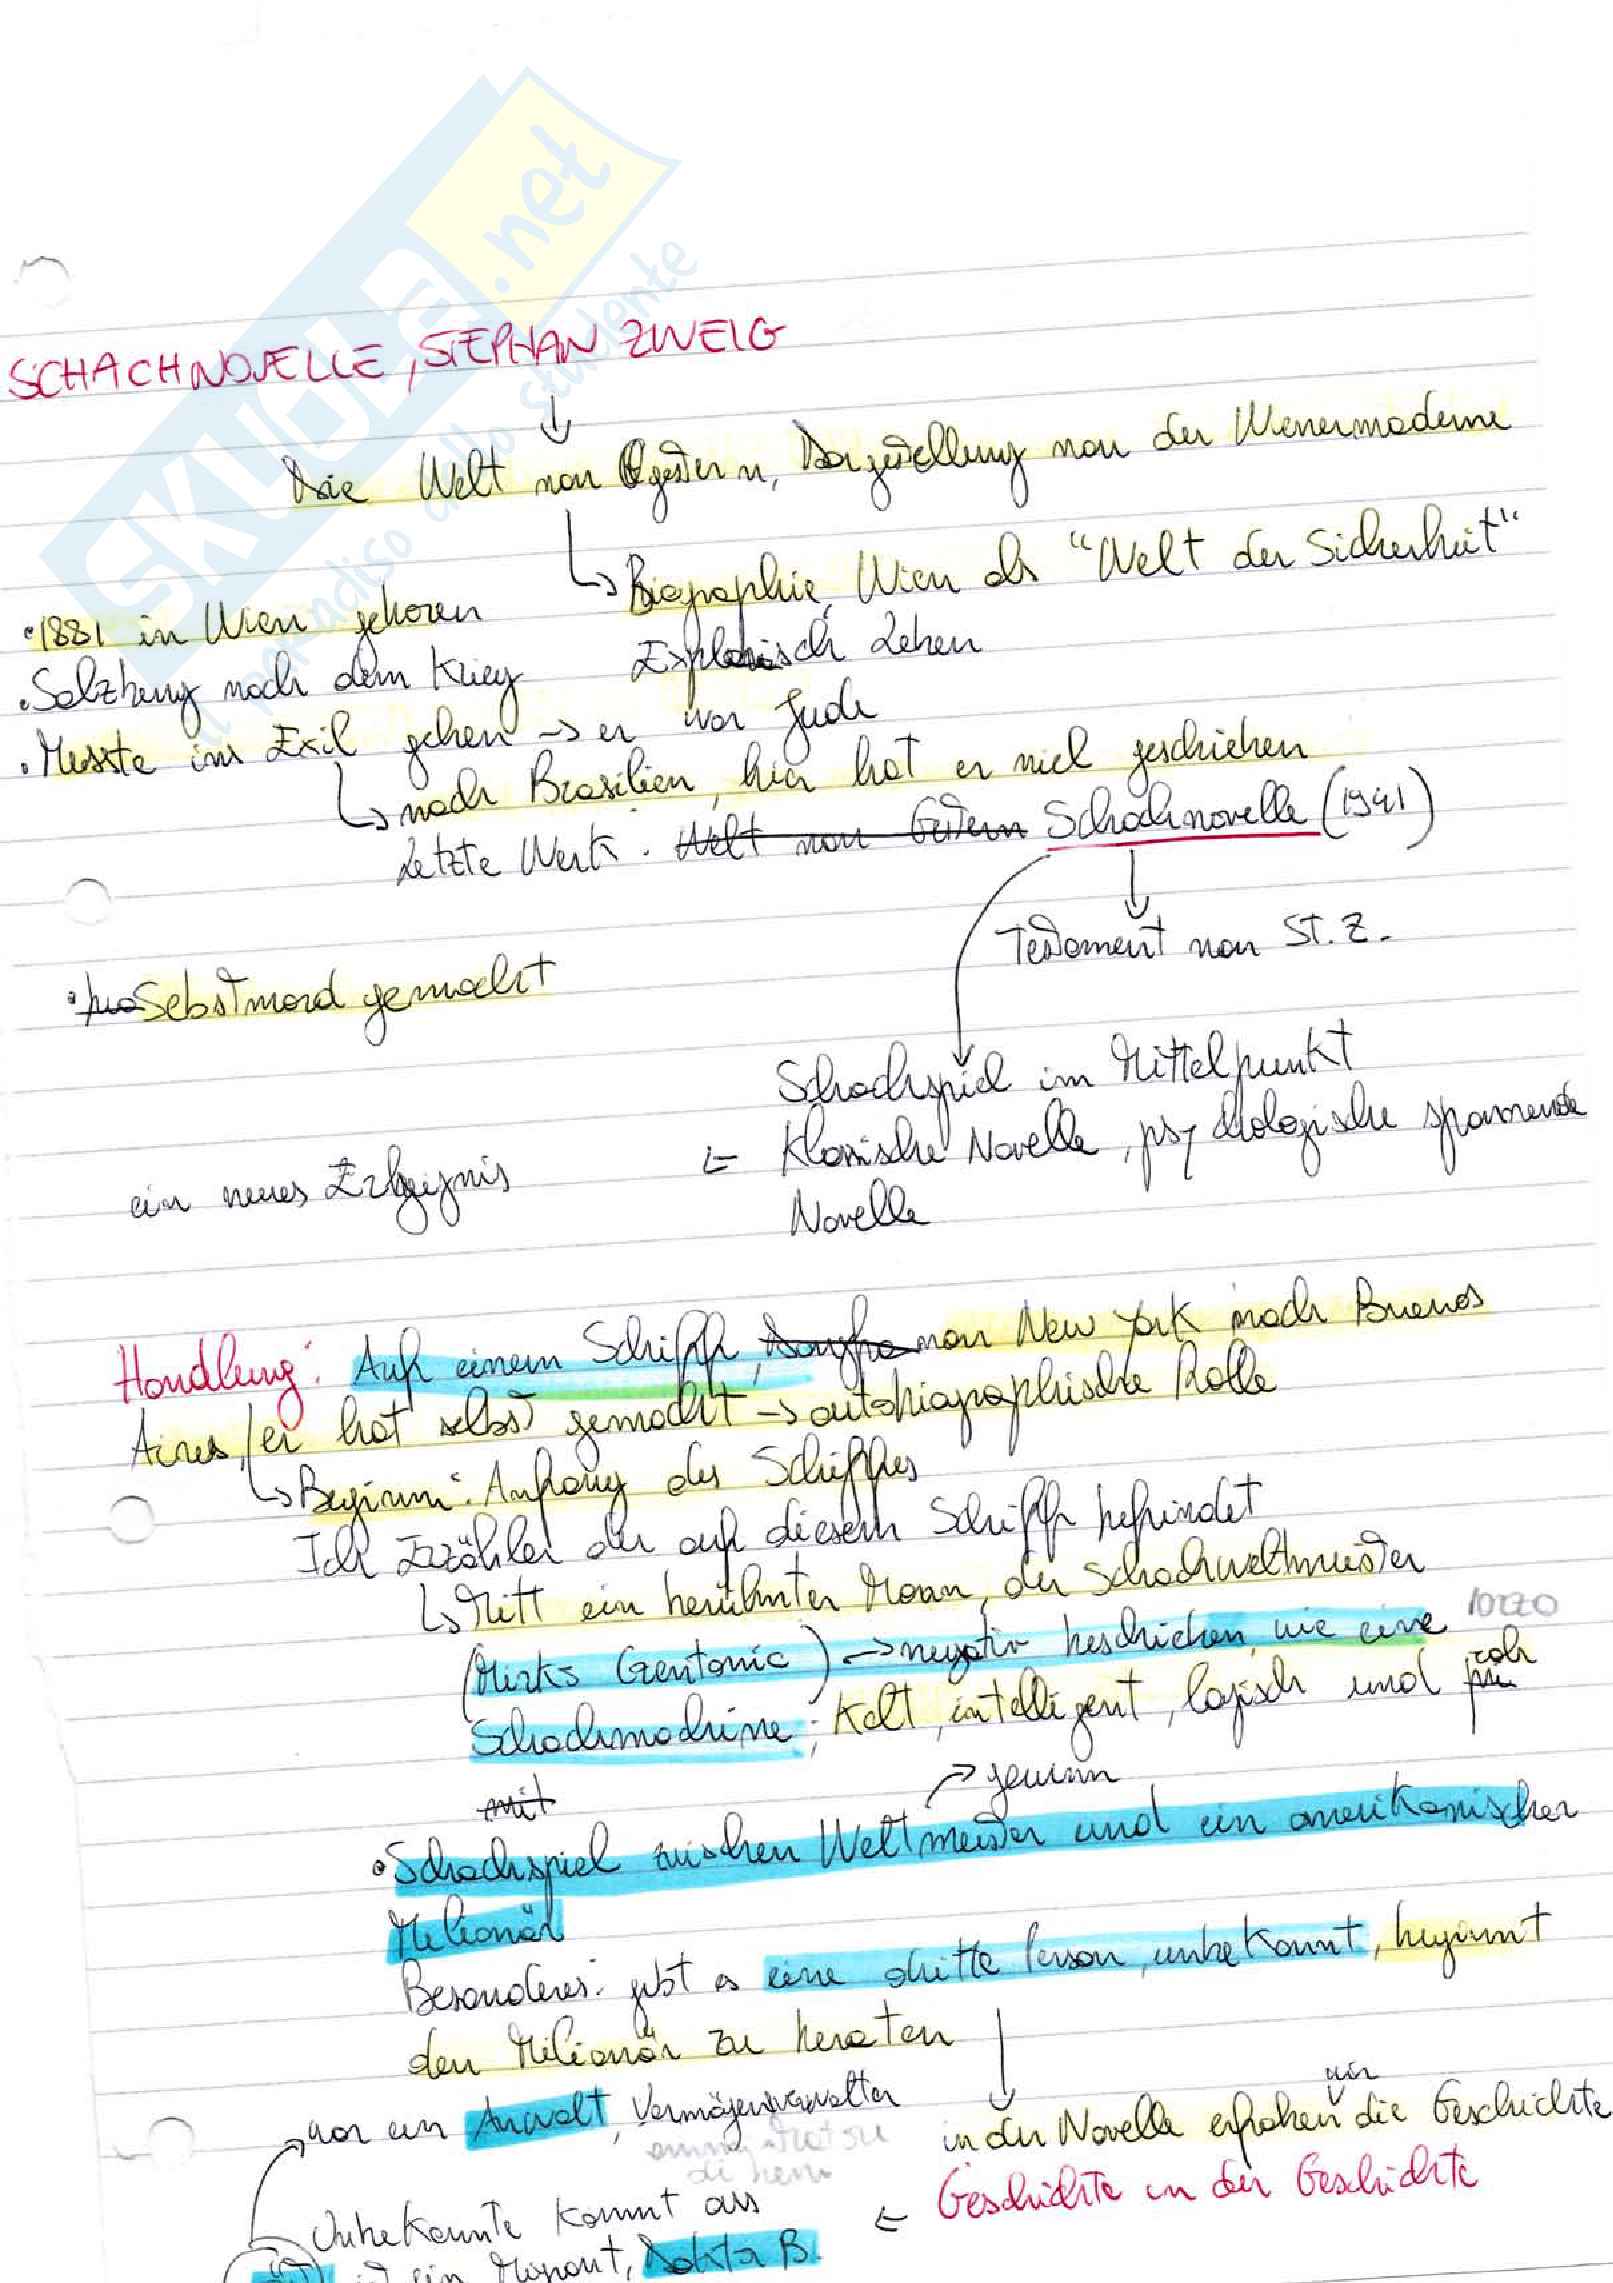 SKUOLA.net
il paradiso dello studente
SCHACHNOVELLE, STEPHAN ZWEIG
Die Welt von gestern, Darstellung von der Wienermoderne
Biographie, Wien als "Welt der Sicherheit"
• 1881 in Wien geboren
Leben
• Salzburg nach dem Krieg
• Musste ins Exil gehen → er war Jude
↳ nach Brasilien, hier hat er viel geschrieben
Letzte Werk. Welt von Gestern Schachnovelle (1941)
Testament von St. Z.
• Sebstmord gemacht
Schachspiel im Mittelpunkt
ein neues ← Klassische Novelle, psychologische spannende
Novelle
Handlung: Auf einem Schiff, von New York nach Buenos
Aires/er hat selbst gemacht → autobiographische Rolle
↳ Beginn: Anfang des Schiffes
Ich Erzähler der auf diesem Schiff befindet
↳ Mitt ein berühmter Mann, der Schachweltmeister
(Mirks Czentonic) → negativ beschrieben wie eine rozzo
Schachmachine; Kalt, intelligent, logisch und roh
mit → gewinn
• Schachspiel zwischen Weltmeister und ein amerikanischer
Milionär
Besonderes: gibt es eine dritte Person, unbekannt, beginnt
den Milionär zu beraten
war ein Anwalt, Vermögensverwalter
di beni
in der Novelle erfahen wir die Geschichte
Geschichte in der Geschichte
←
Unbekannte kommt aus
ist ein Doktor B.